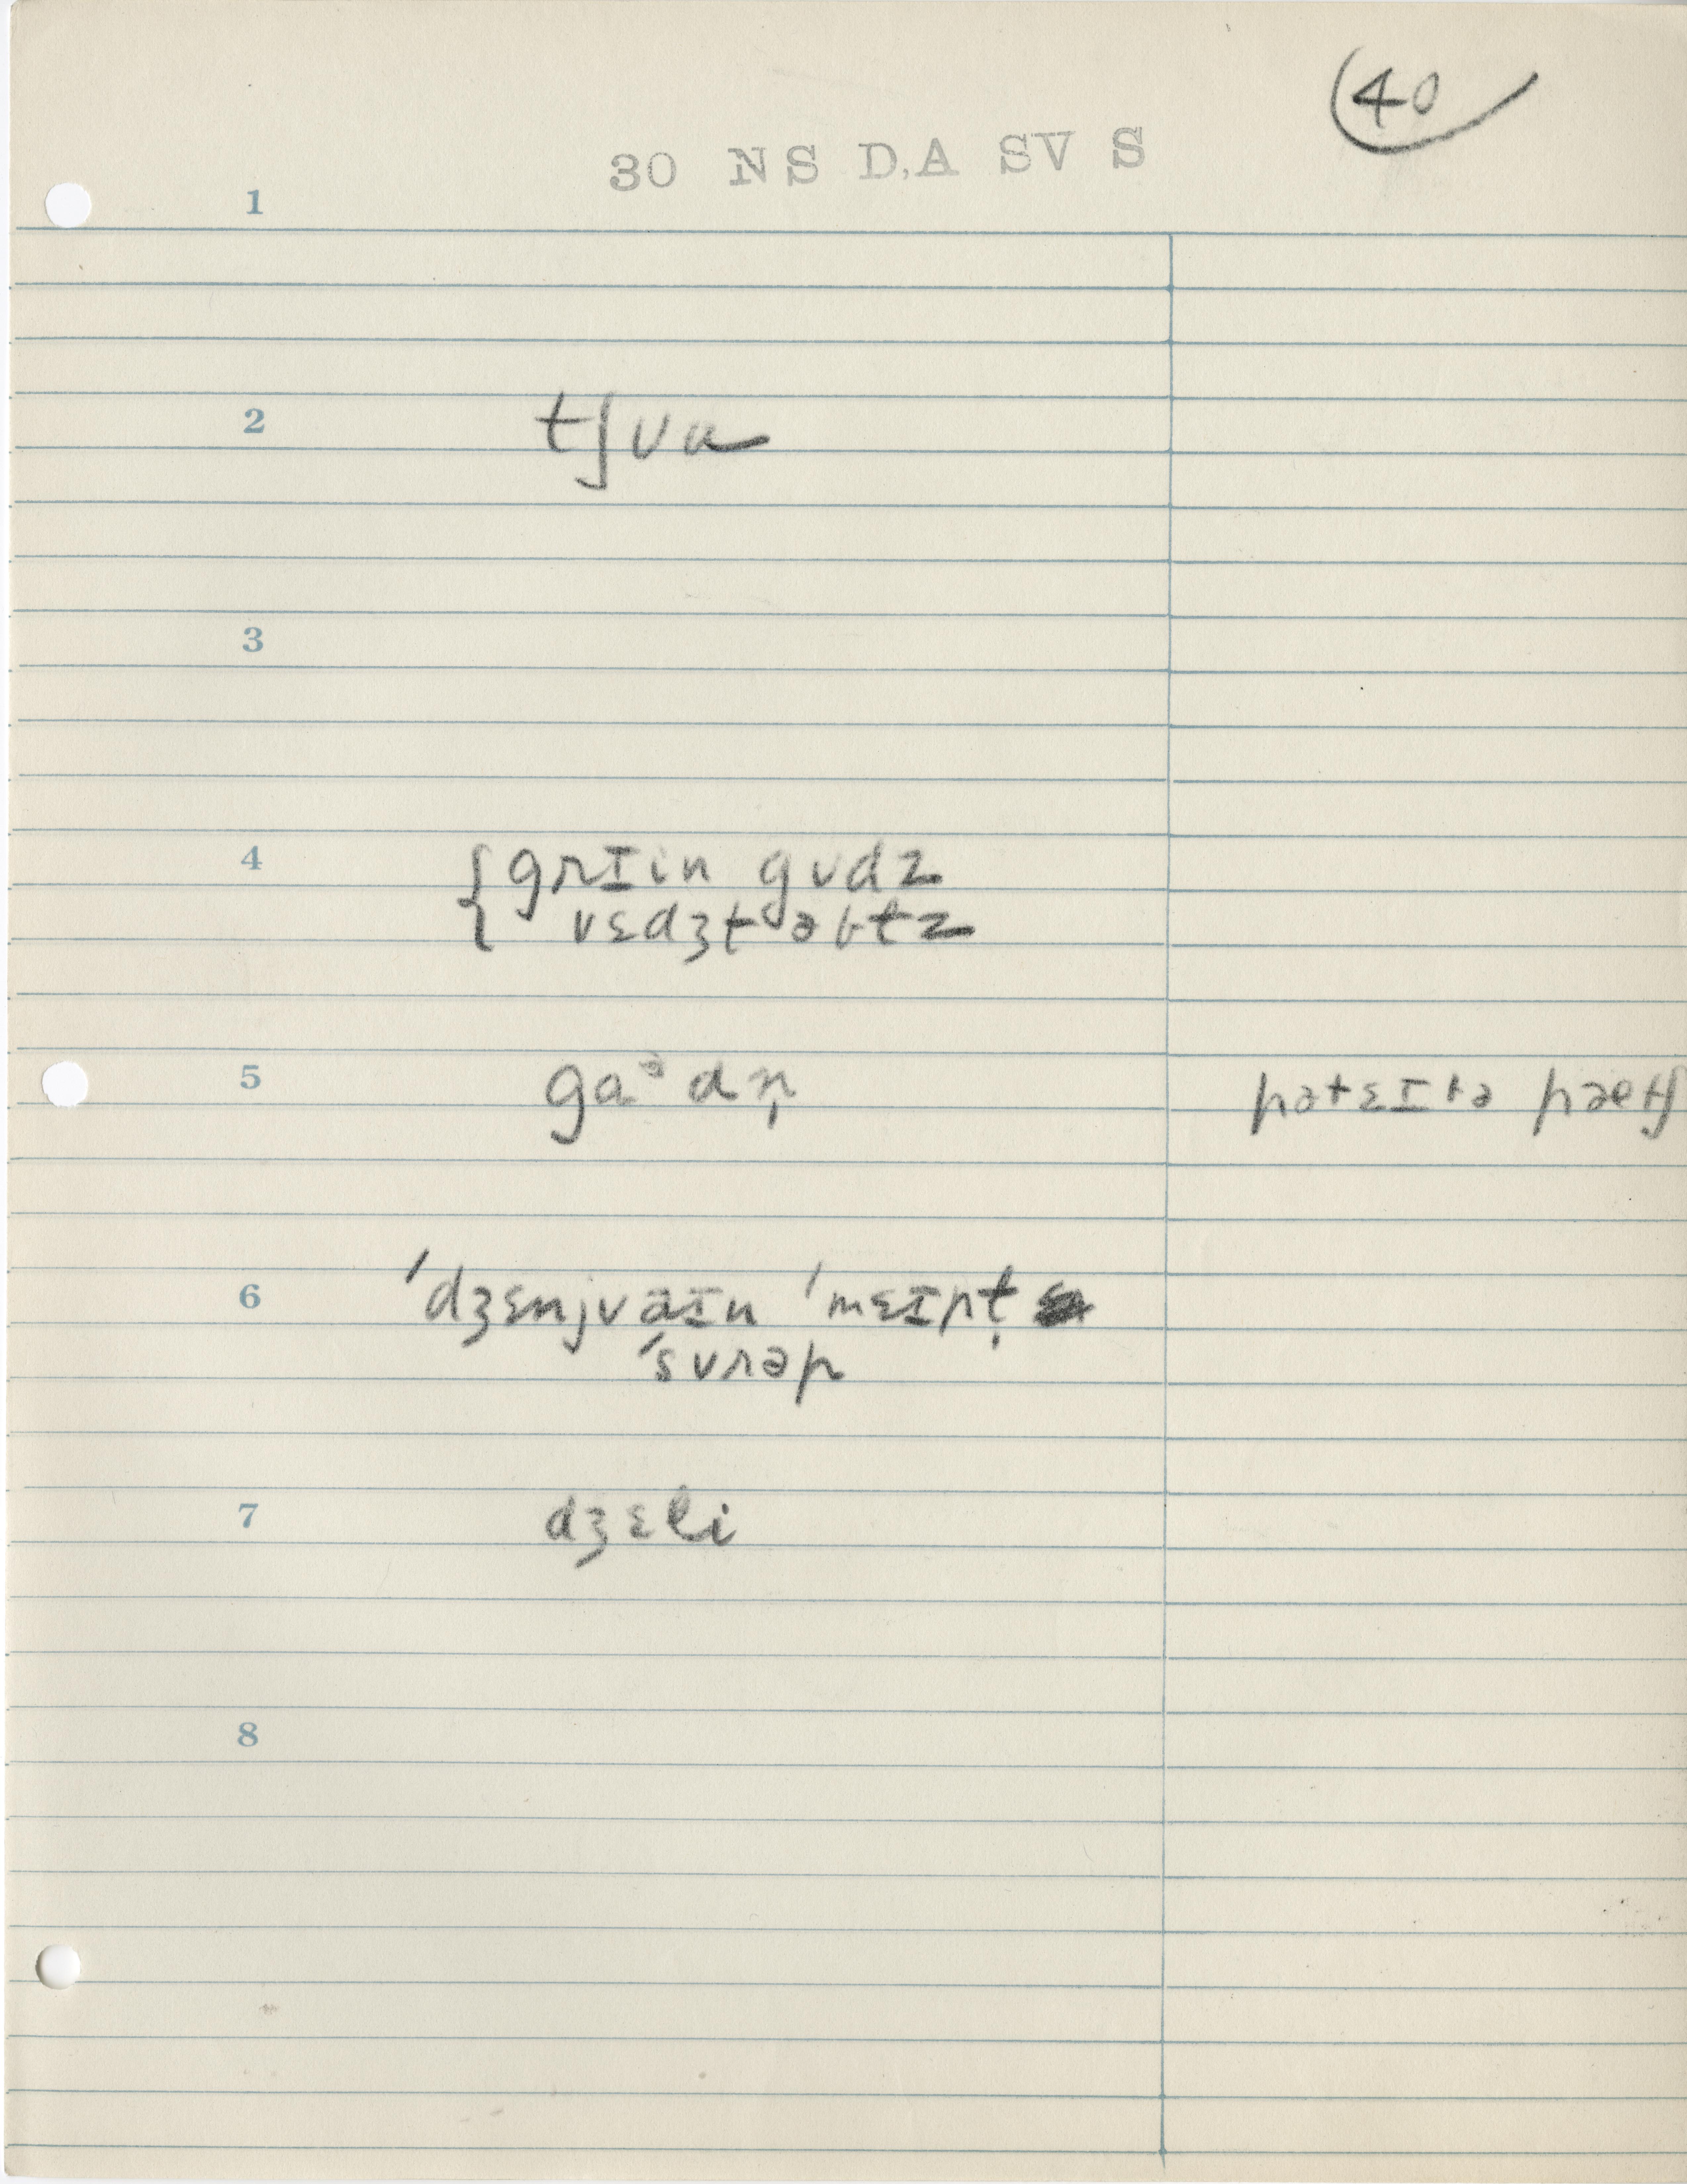 40
30 NS D,A SV S
1
2 tʃʊɑ
3
4 { grɪin gʊdz
vɛdʒtəbtz
5 gɑᵊdn̩ pətɛɪtə pætʃ
6 ˈdʒɛnjʊaɪn ˈmɛɪpɫ̩
ˈsʊrəp
7 dʒɛli
8